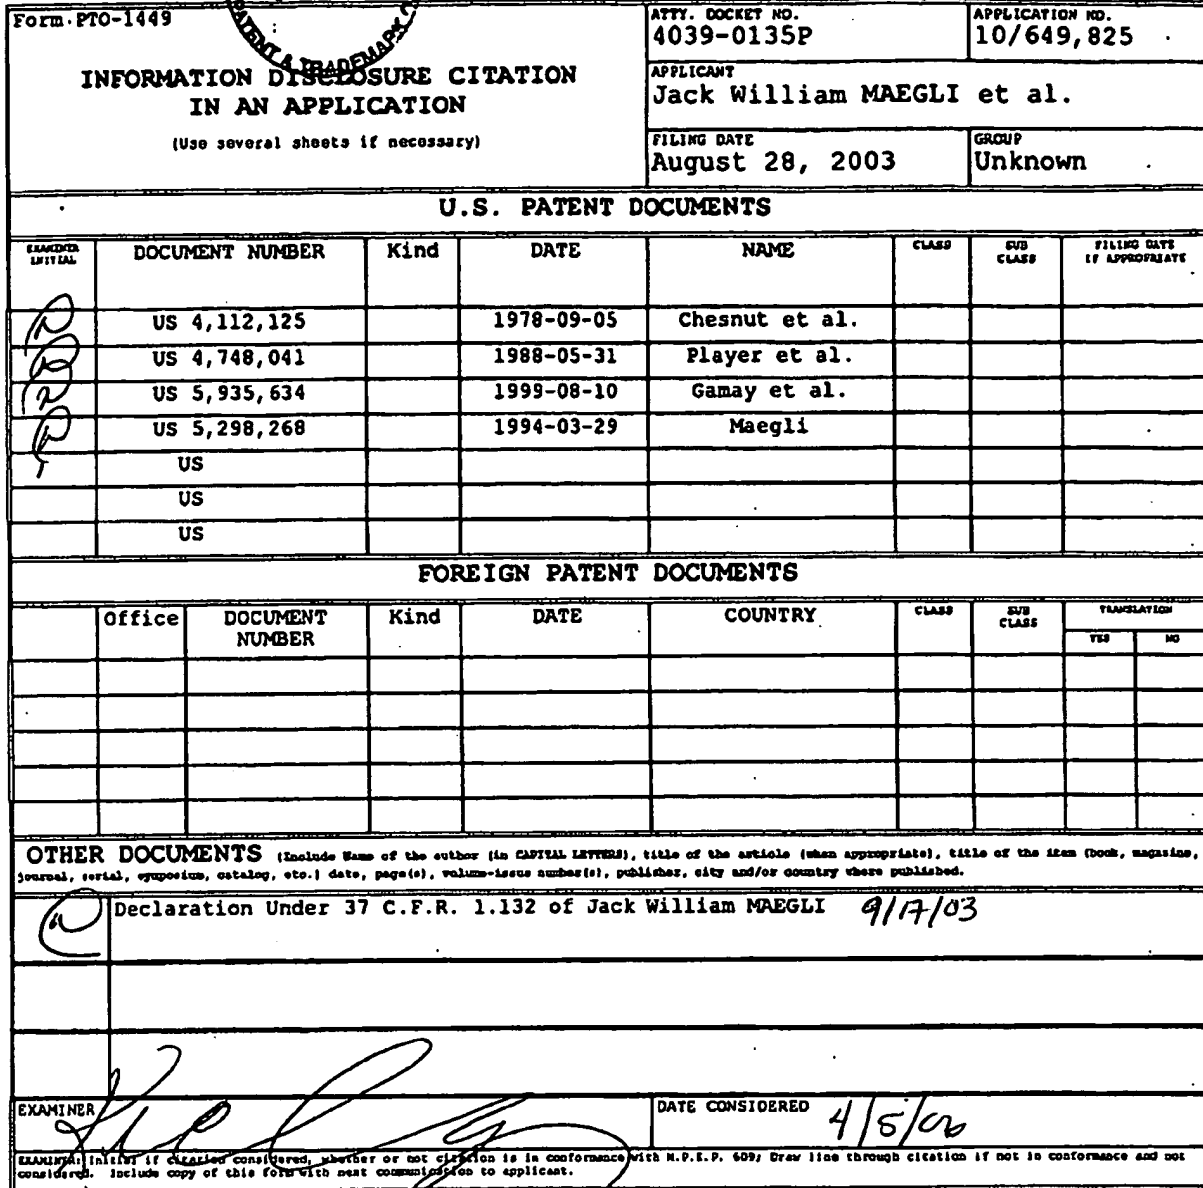 Form PTO-1449
PATENT & TRADEMARK
INFORMATION DISCLOSURE CITATION
IN AN APPLICATION
(Use several sheets if necessary)
ATTY. DOCKET NO.
4039-0135P
APPLICATION NO.
10/649,825
APPLICANT
Jack William MAEGLI et al.
FILING DATE
August 28, 2003
GROUP
Unknown
U.S. PATENT DOCUMENTS
EXAMINER INITIAL DOCUMENT NUMBER Kind DATE NAME CLASS SUB CLASS FILING DATE IF APPROPRIATE
US 4,112,125 1978-09-05 Chesnut et al.
US 4,748,041 1988-05-31 Player et al.
US 5,935,634 1999-08-10 Gamay et al.
US 5,298,268 1994-03-29 Maegli
US
US
US
FOREIGN PATENT DOCUMENTS
Office DOCUMENT NUMBER Kind DATE COUNTRY CLASS SUB CLASS TRANSLATION
YES NO
OTHER DOCUMENTS (Include Name of the author (in CAPITAL LETTERS), title of the article (when appropriate), title of the item (book, magazine,
journal, serial, symposium, catalog, etc.) date, page(s), volume-issue number(s), publisher, city and/or country where published.
Declaration Under 37 C.F.R. 1.132 of Jack William MAEGLI 9/17/03
EXAMINER
DATE CONSIDERED 4/5/06
EXAMINER: Initial if citation considered, whether or not citation is in conformance with M.P.E.P. 609; Draw line through citation if not in conformance and not
considered. Include copy of this form with next communication to applicant.